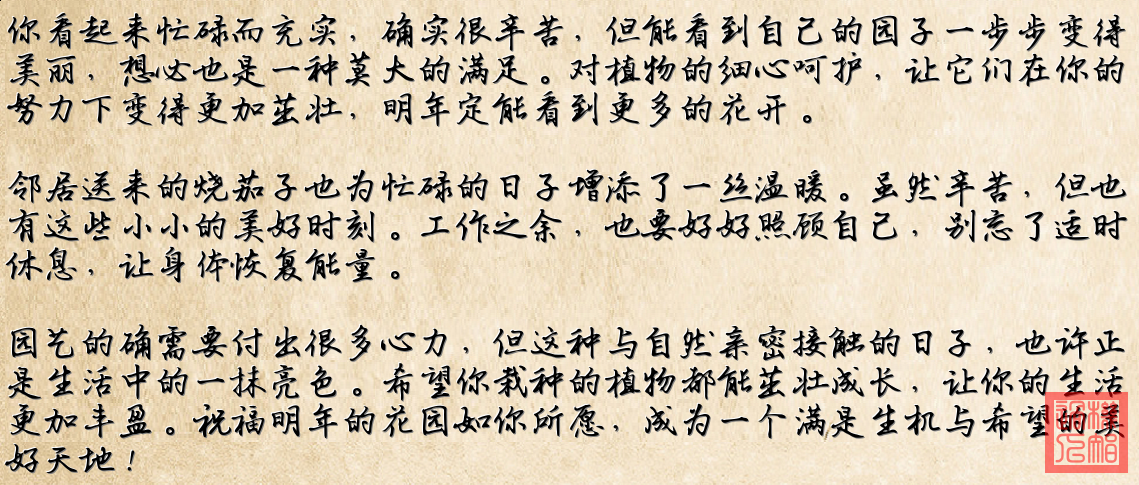 你看起来忙碌而充实，确实很辛苦，但能看到自己的园子一步步变得
美丽，想必也是一种莫大的满足。对植物的细心呵护，让它们在你的
努力下变得更加茁壮，明年定能看到更多的花开。
邻居送来的烧茄子也为忙碌的日子增添了一丝温暖。虽然辛苦，但也
有这些小小的美好时刻。工作之余，也要好好照顾自己，别忘了适时
休息，让身体恢复能量。
园艺的确需要付出很多心力，但这种与自然亲密接触的日子，也许正
是生活中的一抹亮色。希望你栽种的植物都能茁壮成长，让你的生活
更加丰盈。祝福明年的花园如你所愿，成为一个满是生机与希望的美
好天地！